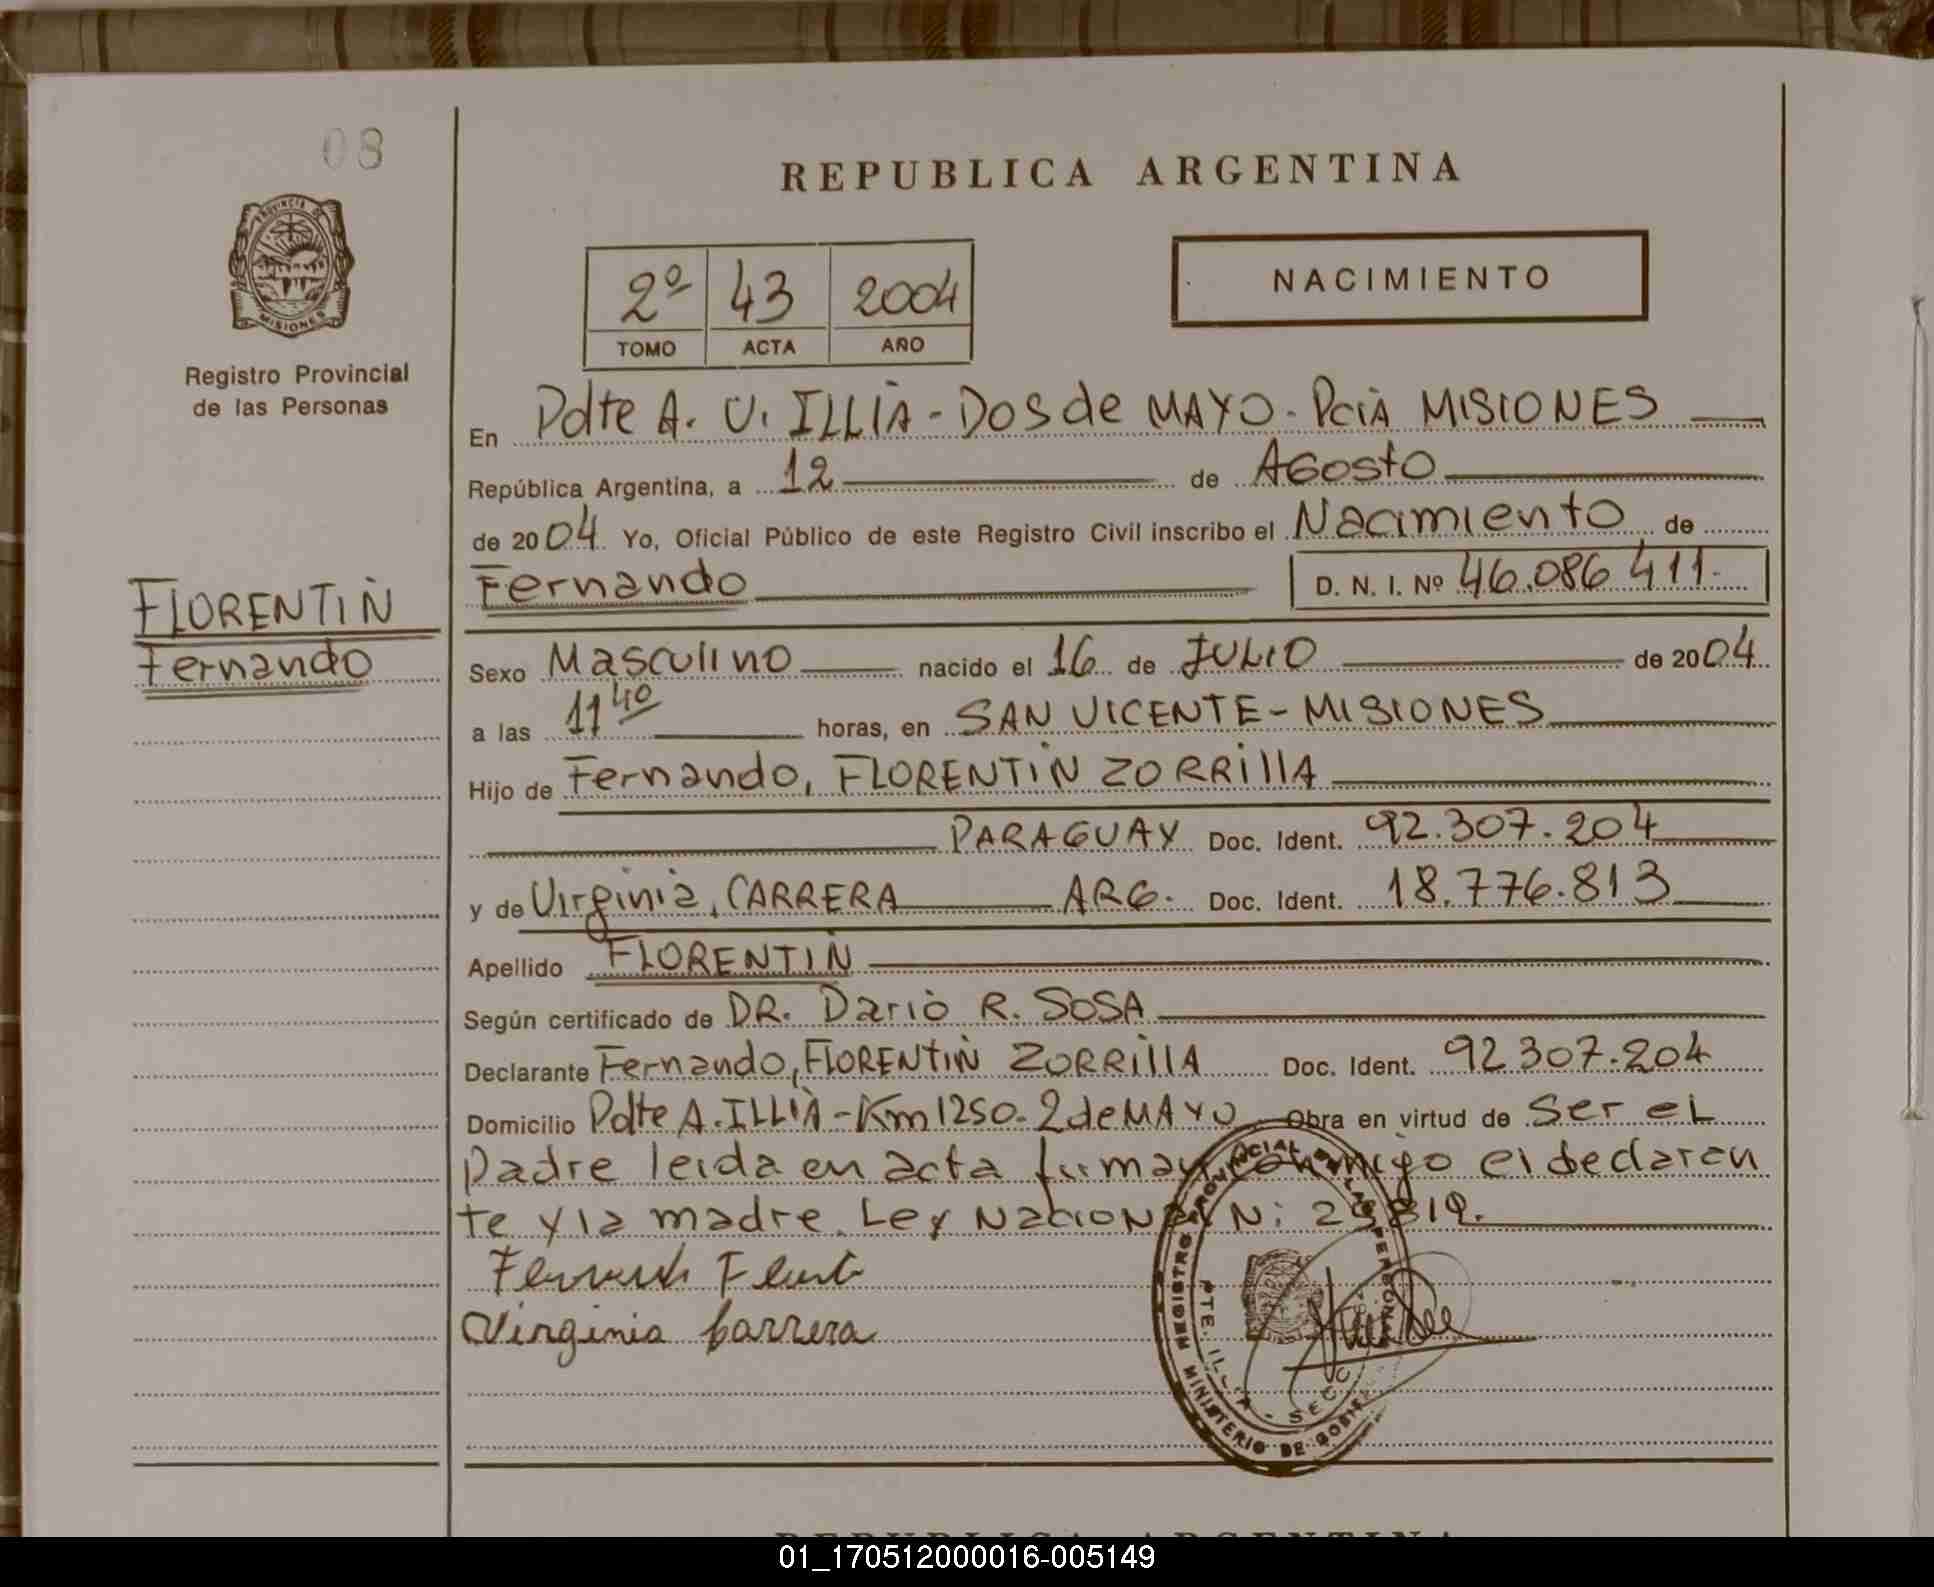 08
REPUBLICA ARGENTINA
PROVINCIA DE
MISIONES
2º 43 2004
TOMO ACTA AÑO
NACIMIENTO
Registro Provincial
de las Personas
En Pdte A. U. ILLIA - Dos de MAYO - PciA MISIONES
República Argentina, a 12 de AGosto
de 2004 Yo, Oficial Público de este Registro Civil inscribo el Nacimiento de
Fernando D. N. I. Nº 46.086 411.
FLORENTIN
Fernando
Sexo Masculino nacido el 16 de JULIO de 2004
a las 11 40 horas, en SAN VICENTE - MISIONES
Hijo de Fernando, FLORENTIN ZORRillA
PARAGUAY Doc. Ident. 92.307.204
y de Virginia, CARRERA ARG. Doc. Ident. 18.776.813
Apellido FLORENTIN
Según certificado de DR. Dario R. SOSA
Declarante Fernando, FLORENTIN ZORRillA Doc. Ident. 92 307.204
Domicilio Pdte A. ILLIA - Km 1250 - 2 de MAYO Obra en virtud de Ser el
Padre leida en acta firman conmigo el declaran
te y la madre. Ley Nacional N:
Virginia Carrera
REGISTRO PROVINCIAL DE LAS PERSONAS
PTE. ILLIA - SECC
MINISTERIO DE GOBIE
REPUBLICA ARGENTINA
01_170512000016-005149